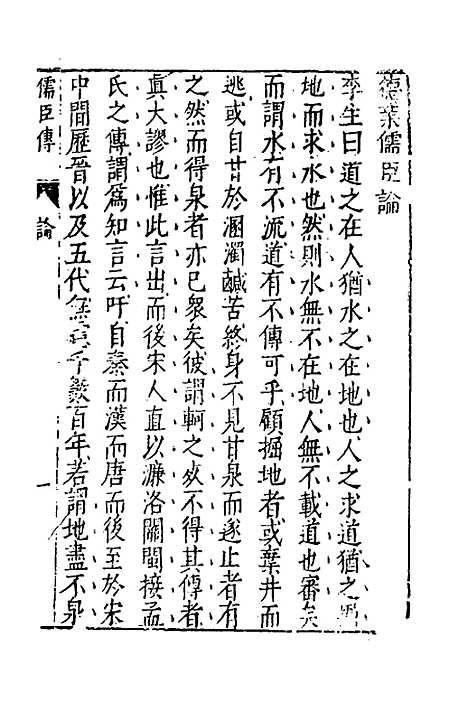 德業儒臣論
李生曰道之在人猶水之在地也人之求道猶之掘
地而求水也然則水無不在地人無不載道也審矣
而謂水有不流道有不傳可乎顧掘地者或棄井而
逃或自甘於溷濁鹹苦終身不見甘泉而遂止者有
之然而得泉者亦已衆矣彼謂軻之死不得其傳者
真大謬也惟此言出而後宋人直以濂洛關閩接孟
氏之傳謂為知言云吁自秦而漢而唐而後至於宋
中間歷晉以及五代無慮千數百年若謂地盡不泉
儒臣傳 論 一